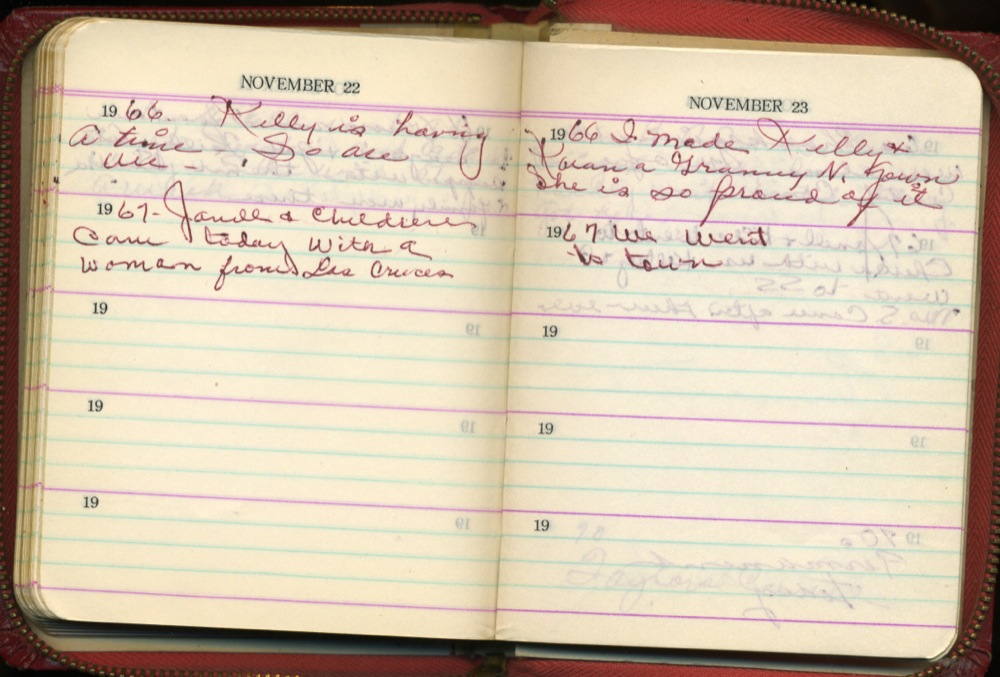 NOVEMBER 22
1966. Kelly is having
a time. So are
we -
1967- Janell & children
came today with a
woman from Las Cruces
19
19
19
NOVEMBER 23
1966 I made Kelly &
a Granny N. gown
She is so proud of it
1967 We went
to town
19
19
19